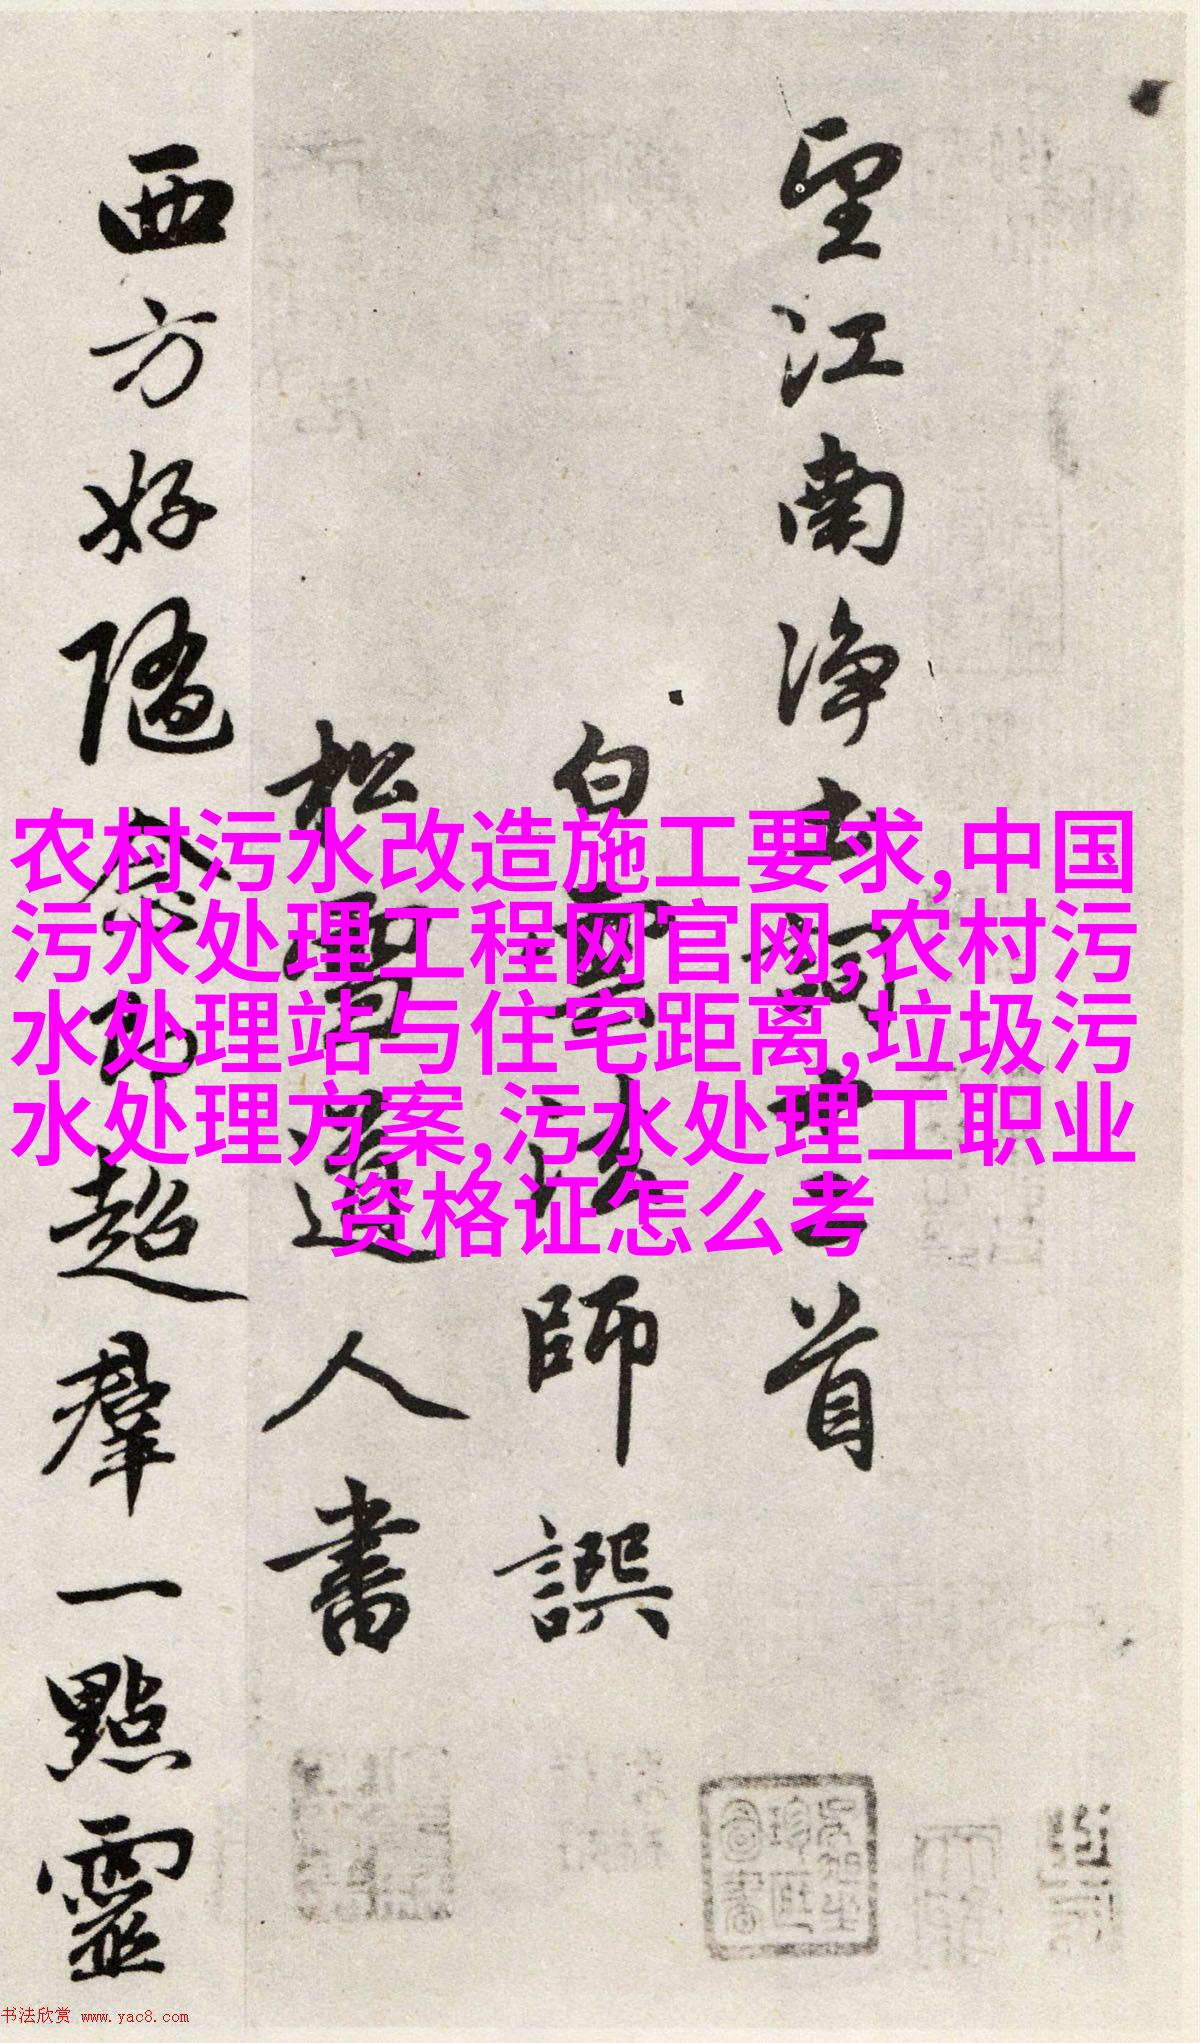 望江南净土詞十二首
白雲法師譔
松雪道人書
西方好隨念即超羣一點靈
农村污水改造施工要求,中国
污水处理工程网官网,农村污
水处理站与住宅距离,垃圾污
水处理方案,污水处理工职业
资格证怎么考
书法欣赏 www.yac8.com